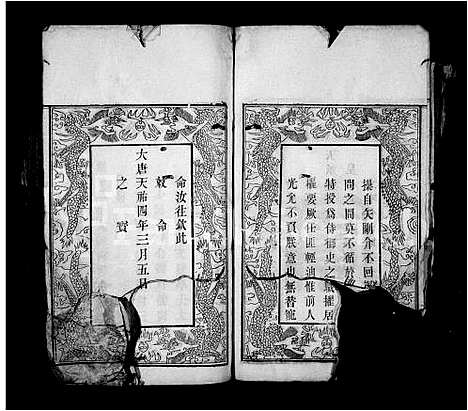 操自矢剛介不回
問之間莫不循於
特授爲侍御史之職擢居
權要厥任匪輕迪惟前人
光尤不負朕意也無替寵
命汝往欽此
敕命
大唐天祐四年三月五日
之寳